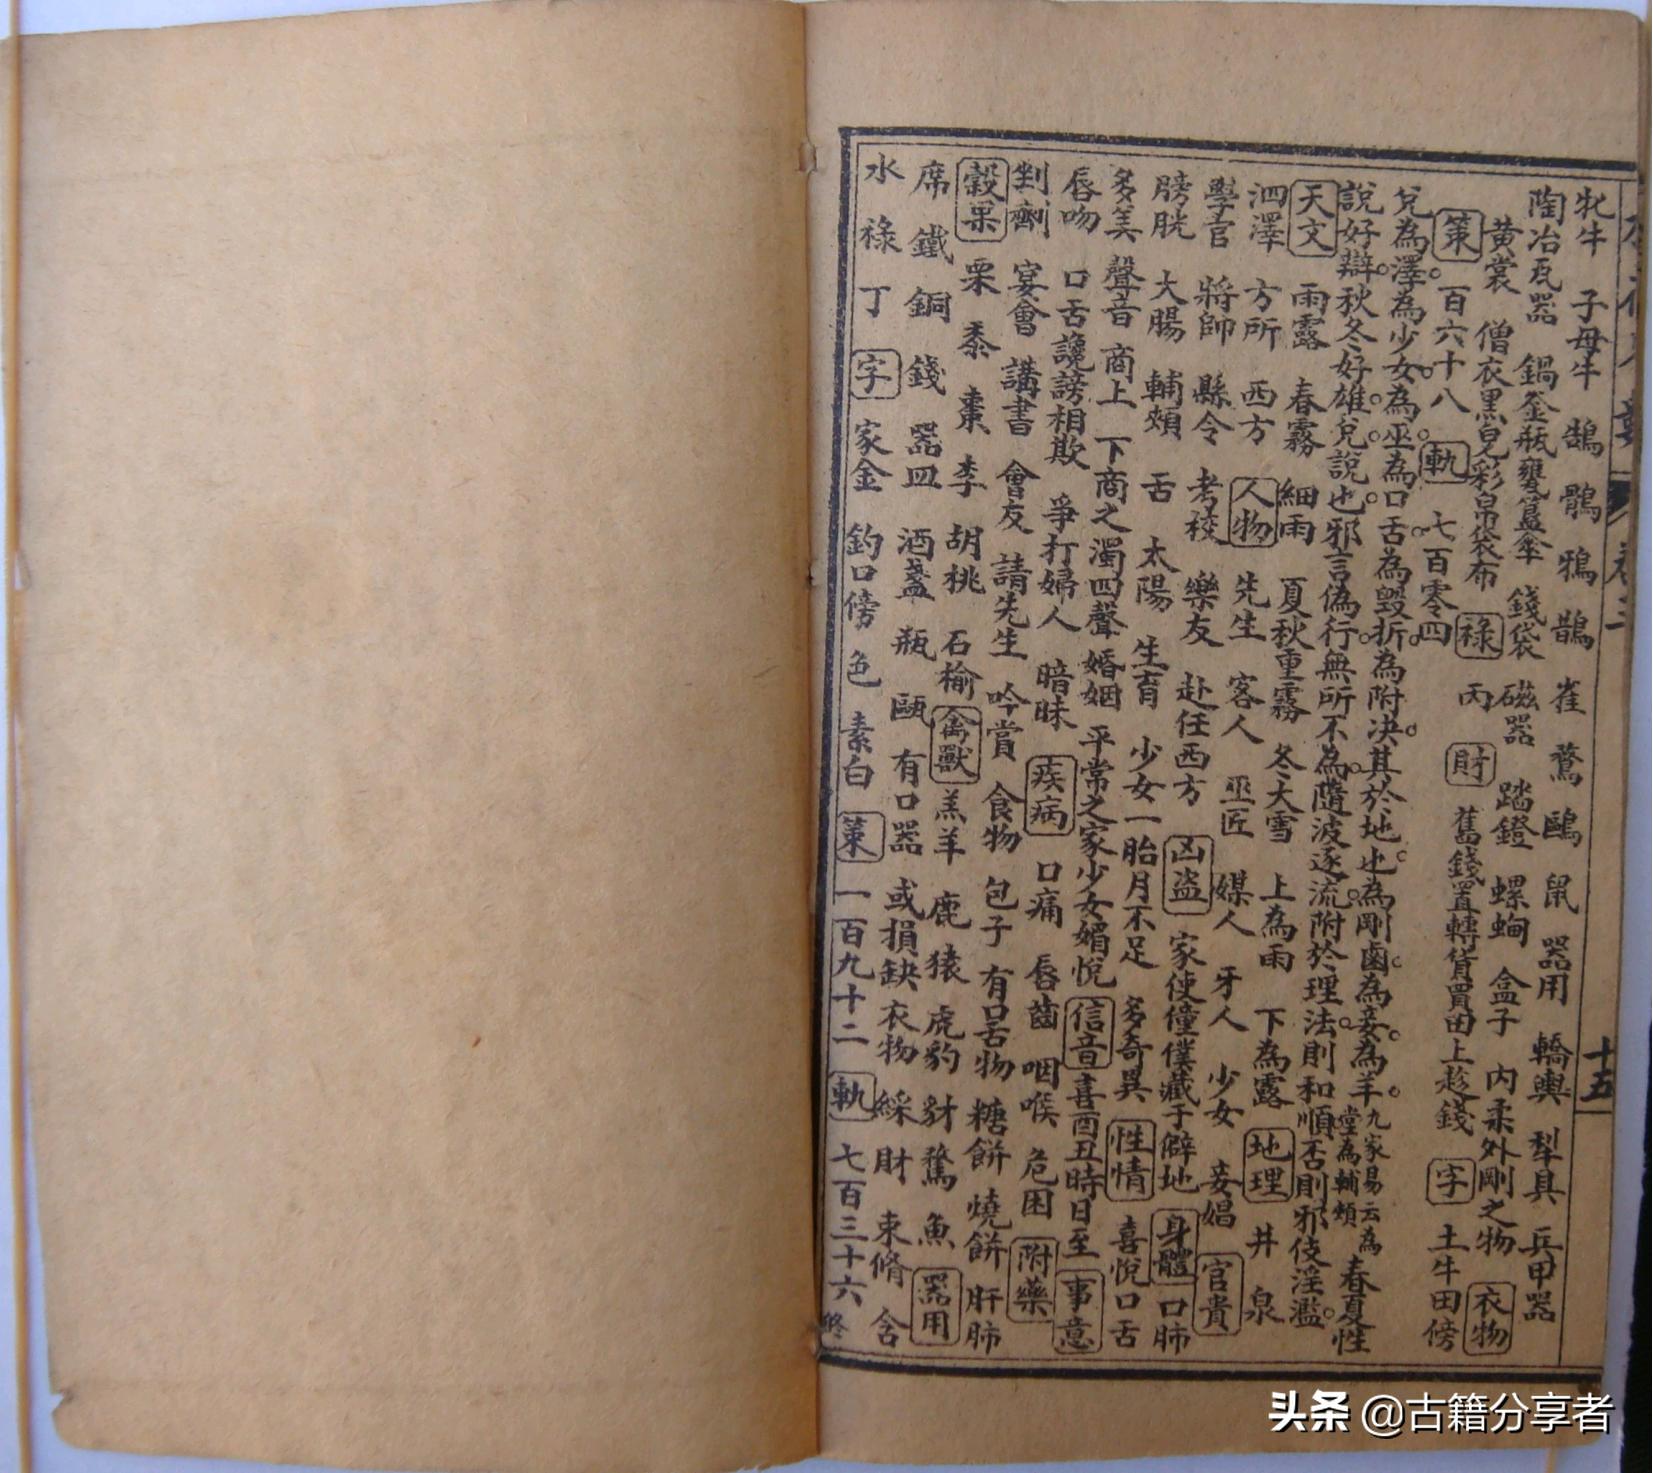 十五
牝牛 子母牛 鵠 鶻 鴉 鵲 雀 鶩 鷗 鼠 器用 轎輿 犁具 兵甲器
陶冶瓦器 鍋釜瓶甕簋傘 錢袋 磁器 踏鐙 螺蚫 盒子 內柔外剛之物 衣物
黃裳 僧衣黑皂彩帛袋布 祿 丙 財 舊錢置轉貨買田上趁錢 字 土牛田傍
策 百六十八 軌 七百零四
兌為澤。為少女。為巫。為口舌。為毀折。為附决。其於地也。為剛鹵。為妾。為羊。九家易云為常為輔頰 春夏性
說好辯。秋冬好雄。兌說也。邪言偽行。無所不為。隨波逐流。附於理法。則和順。否則邪伎淫濫。
天文 雨露 春霧 細雨 夏秋重霧 冬大雪 上為雨 下為露 地理 井 泉
泗澤 方所 西方 人物 先生 客人 巫匠 媒人 牙人 少女 妾娼 官貴
學官 將帥 縣令 考校 樂友 赴任西方 凶盜 家使僮僕藏于僻地 身體 口肺
膀胱 大腸 輔頰 舌 太陽 生育 少女一胎月不足 多奇異 性情 喜悅口舌
多美 聲音 商上 下商之濁四聲 婚姻 平常之家少女媚悅 信音 喜酉丑時日至 事意
唇吻 口舌讒謗相欺 爭打婦人 暗昧 疾病 口痛 唇齒 咽喉 危困 附藥
剉劑 宴會 講書 會友 請先生 吟賞 食物 包子 有口舌物 糖餅 燒餅 肝肺
穀果 栗 黍 棗 李 胡桃 石榆 禽獸 羔羊 鹿 猿 虎豹 豺 鶩 魚 器用
席 鐵 銅 錢 器皿 酒盞 瓶 甌 有口器 或損缺衣物 綵 財 束脩 含
水 祿 丁 字 家金 釣口傍 色 素白 策 一百九十二 軌 七百三十六 終
头条 @古籍分享者